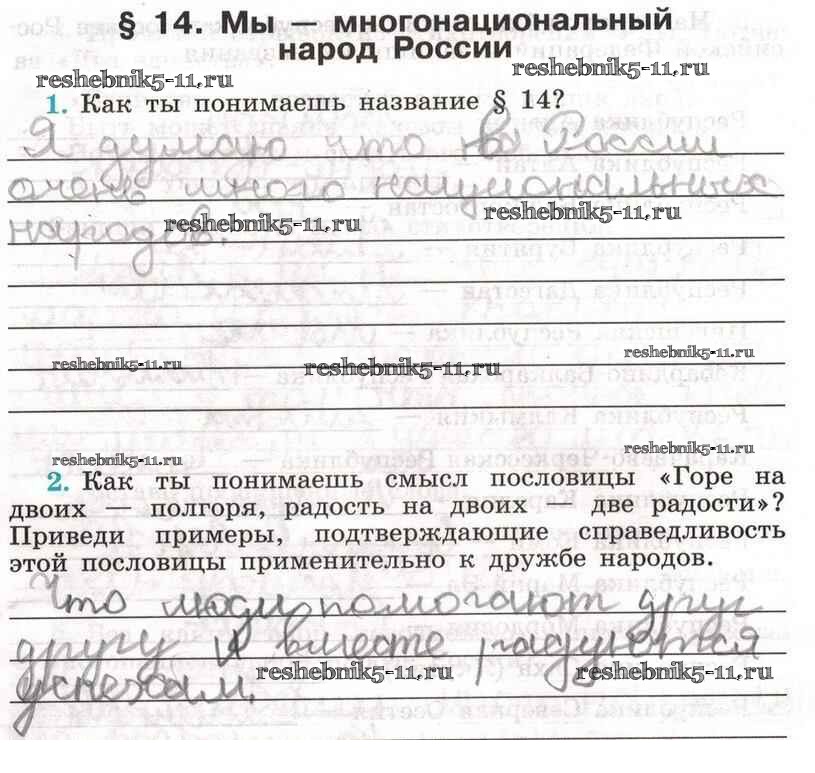 § 14. Мы — многонациональный
народ России
reshebnik5-11.ru
reshebnik5-11.ru
1. Как ты понимаешь название § 14?
Я думаю что в России
очень много национальных
reshebnik5-11.ru
народов.
reshebnik5-11.ru
reshebnik5-11.ru
reshebnik5-11.ru
reshebnik5-11.ru
reshebnik5-11.ru
reshebnik5-11.ru
2. Как ты понимаешь смысл пословицы «Горе на
двоих — полгоря, радость на двоих — две радости»?
Приведи примеры, подтверждающие справедливость
этой пословицы применительно к дружбе народов.
Что люди помогают друг
другу и вместе радуются
reshebnik5-11.ru
reshebnik5-11.ru
успехам.